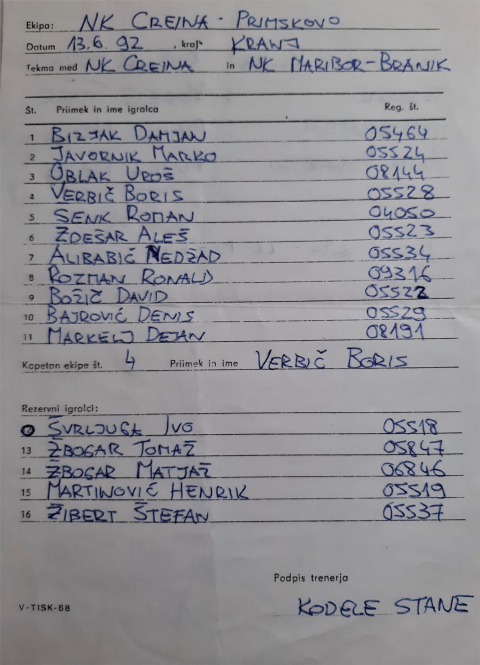 Ekipa: NK CREINA - PRIMSKOVO
Datum 13.6.92 , kraj KRANJ
Tekma med NK CREINA in NK MARIBOR-BRANIK
Št. Priimek in ime igralca Reg. št.
1 BIZJAK DAMJAN 05464
2 JAVORNIK MARKO 05524
3 OBLAK UROŠ 08144
4 VERBIČ BORIS 05528
5 SENK ROMAN 04050
6 ZDEŠAR ALEŠ 05523
7 ALIBABIĆ NEDŽAD 05534
8 ROZMAN RONALD 09316
9 BOŽIČ DAVID 05522
10 BAJROVIĆ DENIS 05529
11 MARKELJ DEJAN 08191
Kapetan ekipe št. 4 Priimek in ime VERBIČ BORIS
Rezervni igralci:
ŠVRLJUGA IVO 05518
13 ŽBOGAR TOMAŽ 05847
14 ŽBOGAR MATJAŽ 06846
15 MARTINOVIĆ HENRIK 05519
16 ŽIBERT ŠTEFAN 05537
Podpis trenerja
V-TISK-68 KODELE STANE